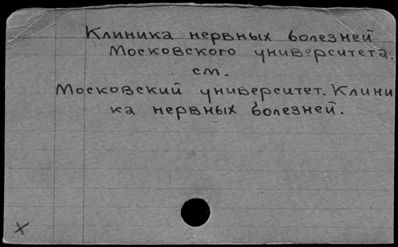 Клиника нервных болезней
Московского университета.
см.
Московский университет. Клини
ка нервных болезней.
x